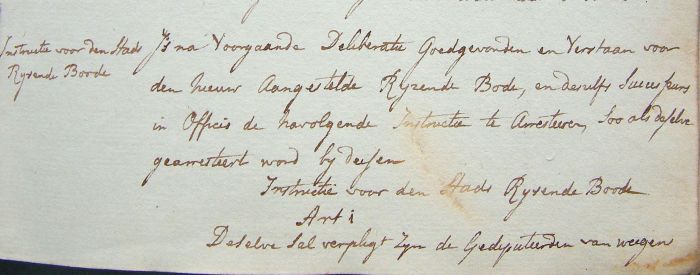 Instructie voor den Stads
Rysende Boode
Is na Voorgaande Deliberatie Goedgevonden en Verstaan voor
den nieuw Aangestelde Ryzende Bode, en deszelfs Successeurs
in Officio de navolgende Instructie te Arresteren, Soo als deselve
gearresteert word by desen
Instructie voor den Stads Rysende Boode
Art 1
Deselve Sal verpligt Zyn de Gedeputeerden van weegen